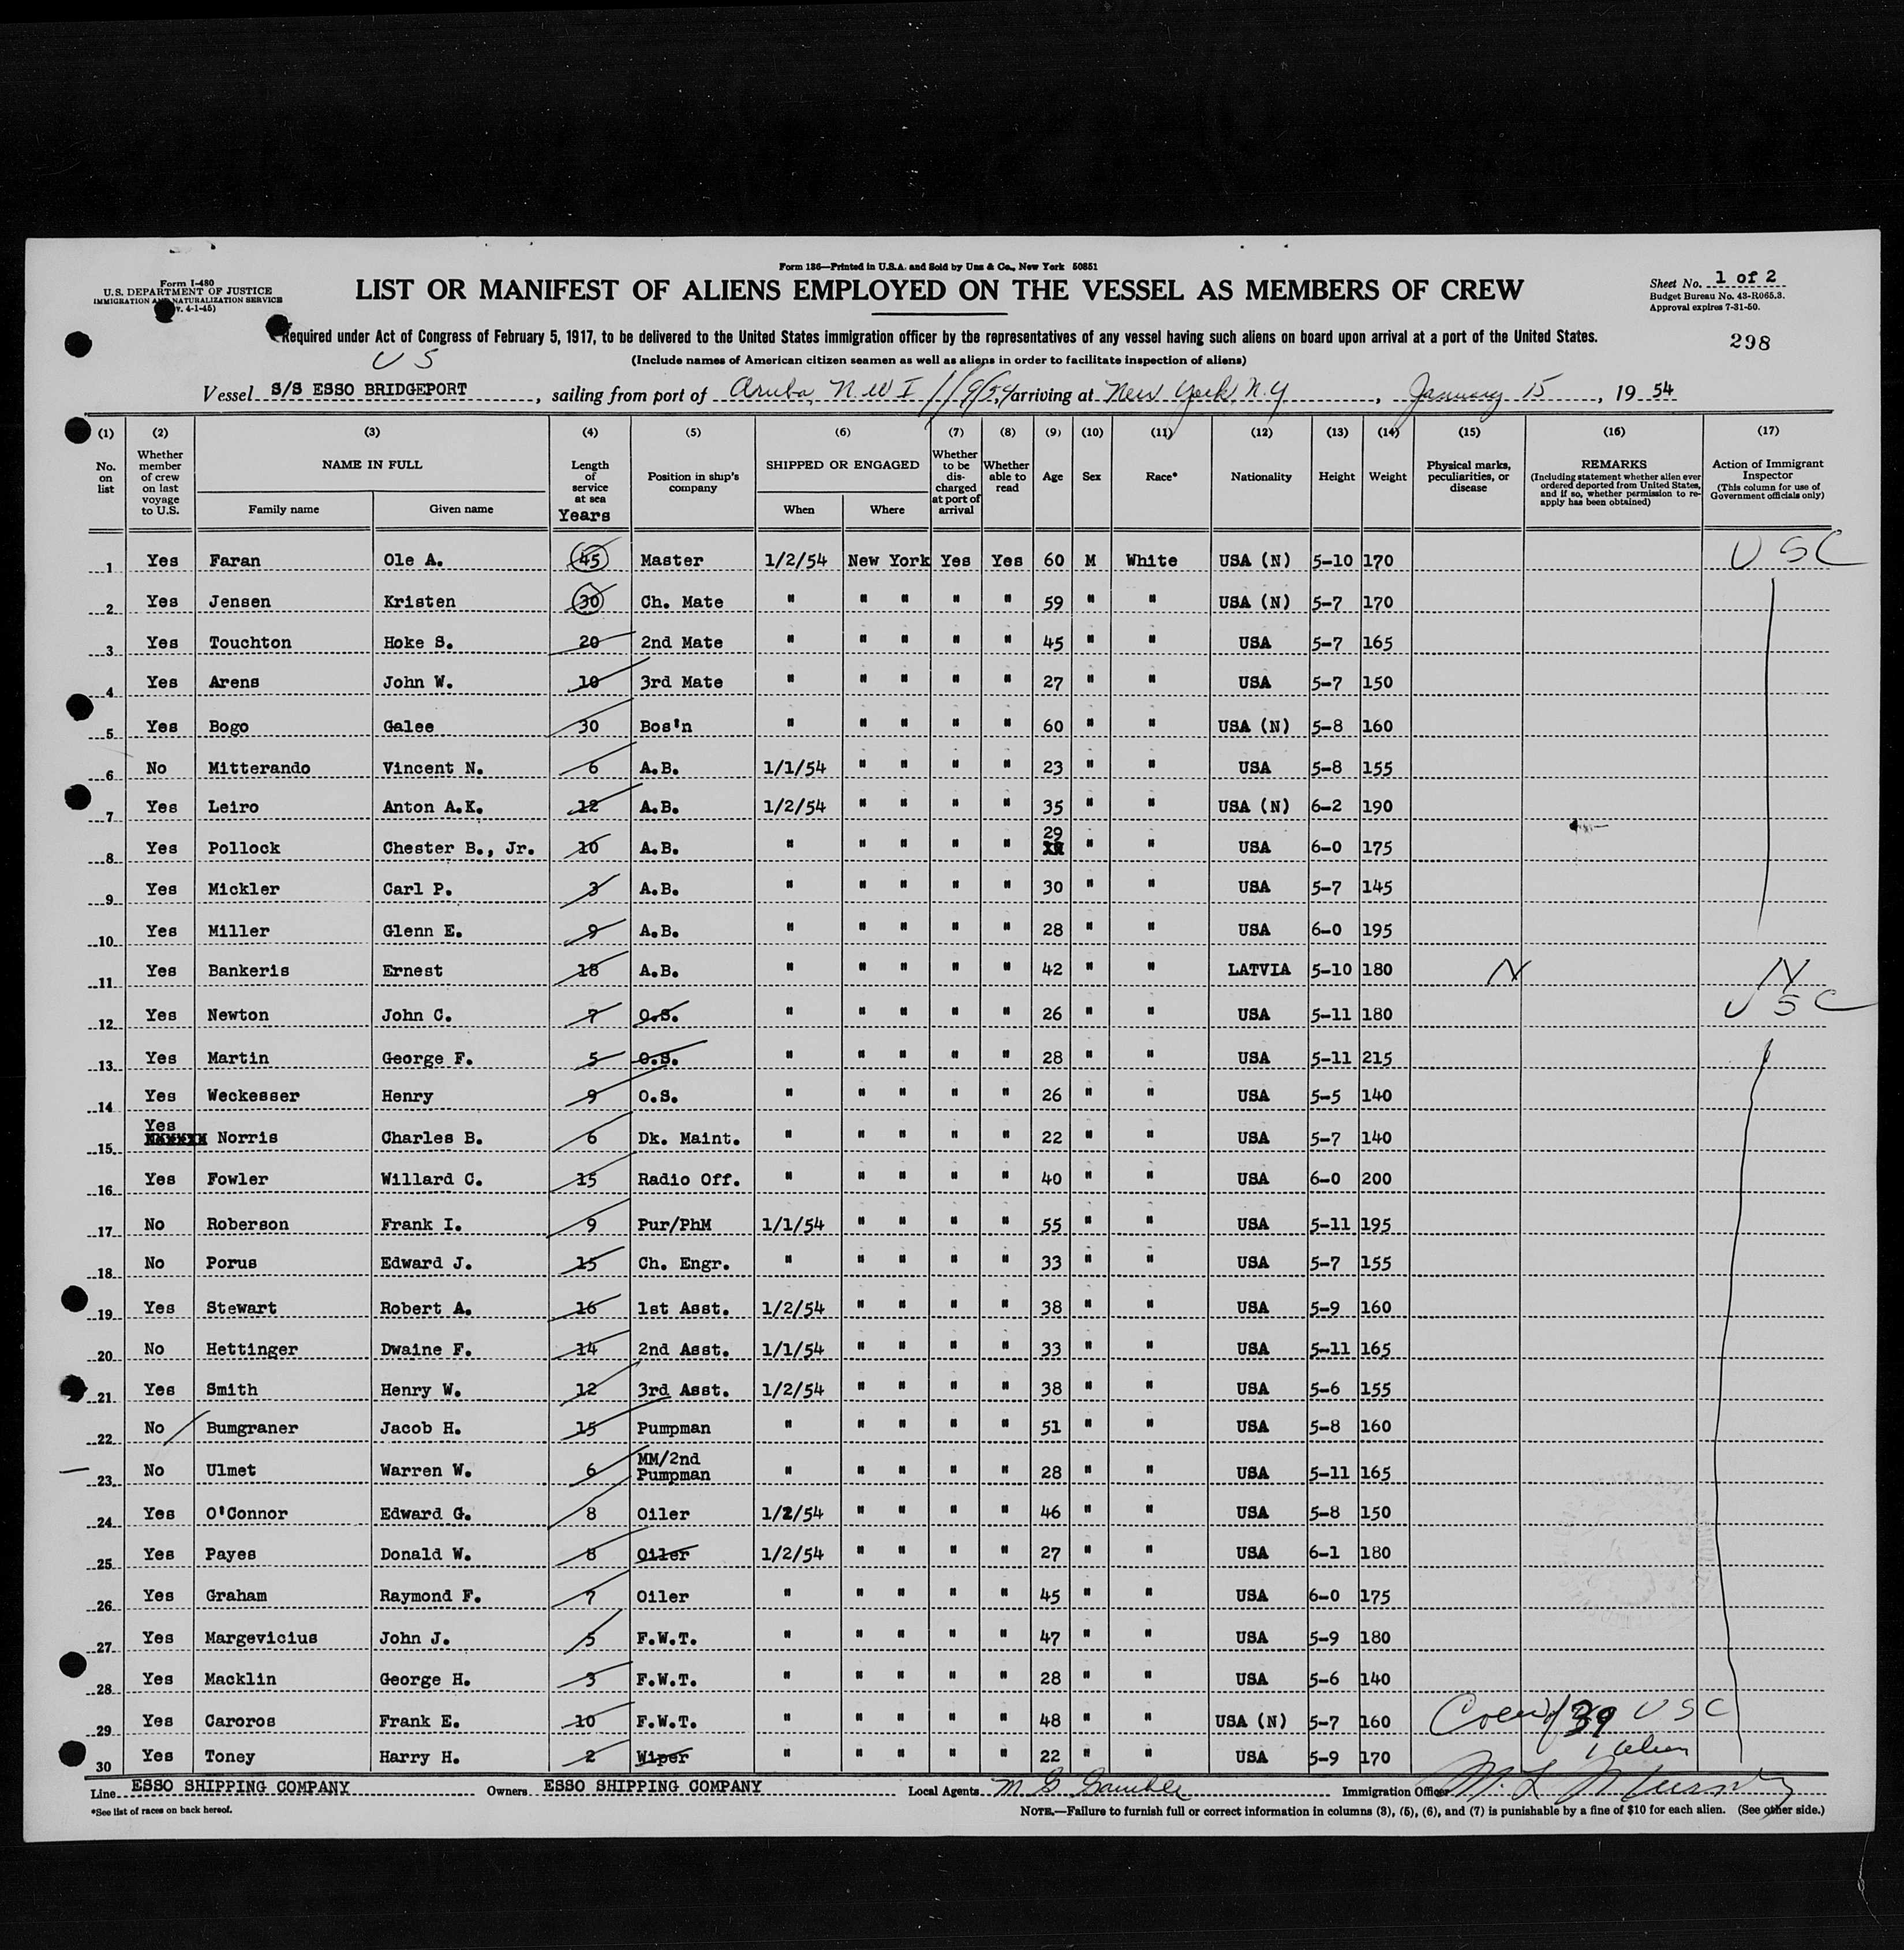 Form 136—Printed in U.S.A. and Sold by Unz & Co., New York 50851
Form I-480
U.S. DEPARTMENT OF JUSTICE
IMMIGRATION AND NATURALIZATION SERVICE
v. 4-1-45)
LIST OR MANIFEST OF ALIENS EMPLOYED ON THE VESSEL AS MEMBERS OF CREW
Sheet No. 1 of 2
Budget Bureau No. 43-R065.3.
Approval expires 7-31-50.
Required under Act of Congress of February 5, 1917, to be delivered to the United States immigration officer by the representatives of any vessel having such aliens on board upon arrival at a port of the United States.
298
U S
(Include names of American citizen seamen as well as aliens in order to facilitate inspection of aliens)
Vessel S/S ESSO BRIDGEPORT, sailing from port of Aruba, N.W.I 1/9/54 arriving at New York, N.Y, January 15, 19 54
(1) (2) (3) (4) (5) (6) (7) (8) (9) (10) (11) (12) (13) (14) (15) (16) (17)
No. on list
Whether member of crew on last voyage to U.S.
NAME IN FULL
Family name Given name
Length of service at sea Years
Position in ship's company
SHIPPED OR ENGAGED
When Where
Whether to be discharged at port of arrival
Whether able to read
Age Sex Race* Nationality Height Weight
Physical marks, peculiarities, or disease
REMARKS (Including statement whether alien ever ordered deported from United States, and if so, whether permission to re-apply has been obtained)
Action of Immigrant Inspector (This column for use of Government officials only)
1 Yes Faran Ole A. 45 Master 1/2/54 New York Yes Yes 60 M White USA (N) 5-10 170 USC
2 Yes Jensen Kristen 30 Ch. Mate " " " " " 59 " " USA (N) 5-7 170
3 Yes Touchton Hoke S. 20 2nd Mate " " " " " 45 " " USA 5-7 165
4 Yes Arens John W. 10 3rd Mate " " " " " 27 " " USA 5-7 150
5 Yes Bogo Galee 30 Bos'n " " " " " 60 " " USA (N) 5-8 160
6 No Mitterando Vincent N. 6 A.B. 1/1/54 " " " " 23 " " USA 5-8 155
7 Yes Leiro Anton A.K. 12 A.B. 1/2/54 " " " " 35 " " USA (N) 6-2 190
8 Yes Pollock Chester B., Jr. 10 A.B. " " " " " 29 " " USA 6-0 175
9 Yes Mickler Carl P. 3 A.B. " " " " " 30 " " USA 5-7 145
10 Yes Miller Glenn E. 9 A.B. " " " " " 28 " " USA 6-0 195
11 Yes Bankeris Ernest 18 A.B. " " " " " 42 " " LATVIA 5-10 180 N N
12 Yes Newton John C. 7 O.S. " " " " " 26 " " USA 5-11 180 USC
13 Yes Martin George F. 5 O.S. " " " " " 28 " " USA 5-11 215
14 Yes Weckesser Henry 9 O.S. " " " " " 26 " " USA 5-5 140
15 Yes Norris Charles B. 6 Dk. Maint. " " " " " 22 " " USA 5-7 140
16 Yes Fowler Willard C. 15 Radio Off. " " " " " 40 " " USA 6-0 200
17 No Roberson Frank I. 9 Pur/PhM 1/1/54 " " " " 55 " " USA 5-11 195
18 No Porus Edward J. 15 Ch. Engr. " " " " " 33 " " USA 5-7 155
19 Yes Stewart Robert A. 16 1st Asst. 1/2/54 " " " " 38 " " USA 5-9 160
20 No Hettinger Dwaine F. 14 2nd Asst. 1/1/54 " " " " 33 " " USA 5-11 165
21 Yes Smith Henry W. 12 3rd Asst. 1/2/54 " " " " 38 " " USA 5-6 155
22 No Bumgraner Jacob H. 15 Pumpman " " " " " 51 " " USA 5-8 160
23 No Ulmet Warren W. 6 MM/2nd Pumpman " " " " " 28 " " USA 5-11 165
24 Yes O'Connor Edward G. 8 Oiler 1/2/54 " " " " 46 " " USA 5-8 150
25 Yes Payes Donald W. 8 Oiler 1/2/54 " " " " 27 " " USA 6-1 180
26 Yes Graham Raymond F. 7 Oiler " " " " " 45 " " USA 6-0 175
27 Yes Margevicius John J. 5 F.W.T. " " " " " 47 " " USA 5-9 180
28 Yes Macklin George H. 3 F.W.T. " " " " " 28 " " USA 5-6 140
29 Yes Caroros Frank E. 10 F.W.T. " " " " " 48 " " USA (N) 5-7 160 Crew of 39 USC
30 Yes Toney Harry H. 2 Wiper " " " " " 22 " " USA 5-9 170 1 alien
Line ESSO SHIPPING COMPANY Owners ESSO SHIPPING COMPANY Local Agents M G Gamble Immigration Officer M. L.
*See list of races on back hereof.
NOTE.—Failure to furnish full or correct information in columns (3), (5), (6), and (7) is punishable by a fine of $10 for each alien. (See other side.)